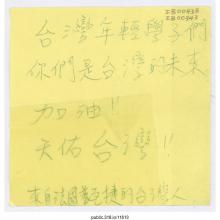 台灣年輕學子們
你們是台灣的未來
加油!!
天佑台灣!!
來自法國蒙彼捷的台灣人
public.318.io/11613